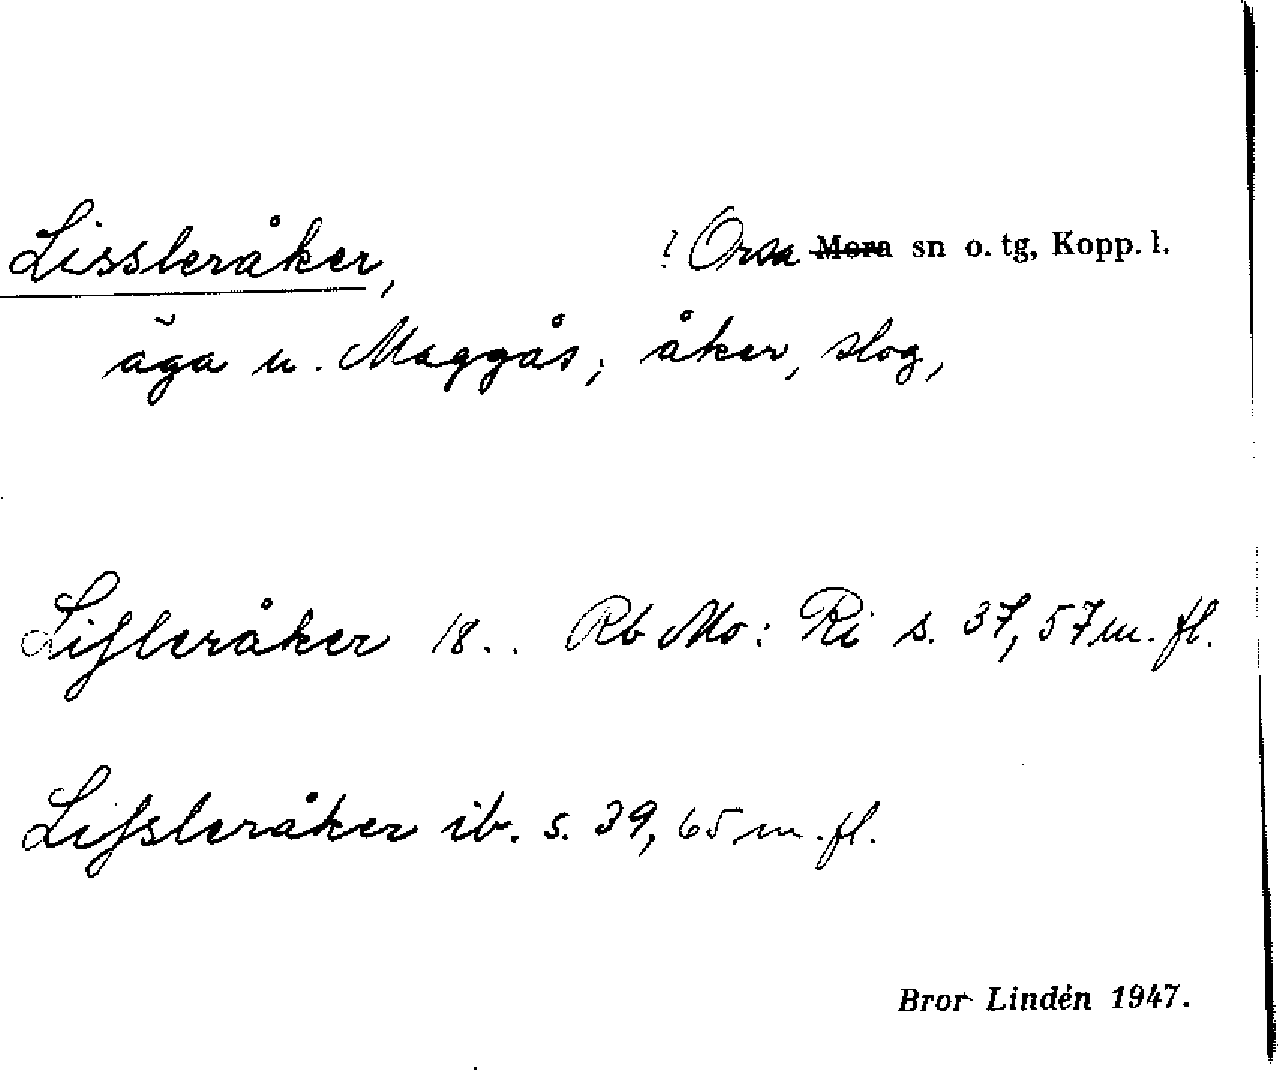 Lissleråker, ! Orsa Mora sn o. tg, Kopp. l.
äga u. Maggås; åker, slog,
Liſleråker 18.. Rb Mo: Ri s. 37, 57 m. fl.
Liſsleråker ib. s. 39, 65 m. fl.
Bror Lindén 1947.